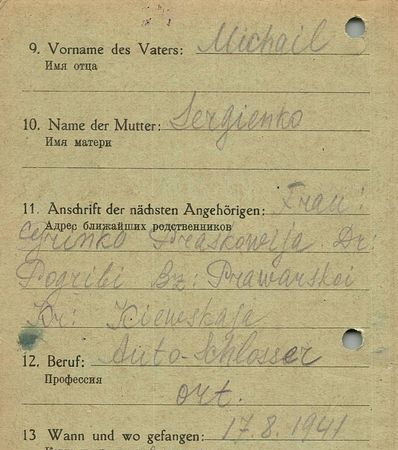 9. Vorname des Vaters: Michail
Имя отца
10. Name der Mutter: Sergienko
Имя матери
11. Anschrift der nächsten Angehörigen: Frau:
Адрес ближайших родственников
Praskowija Dr:
Pogribi Bz: Prawarskoi
Kr: Kiewskaja
12. Beruf: Auto-Schlosser
Профессия
ort.
13 Wann und wo gefangen: 17.8.1941